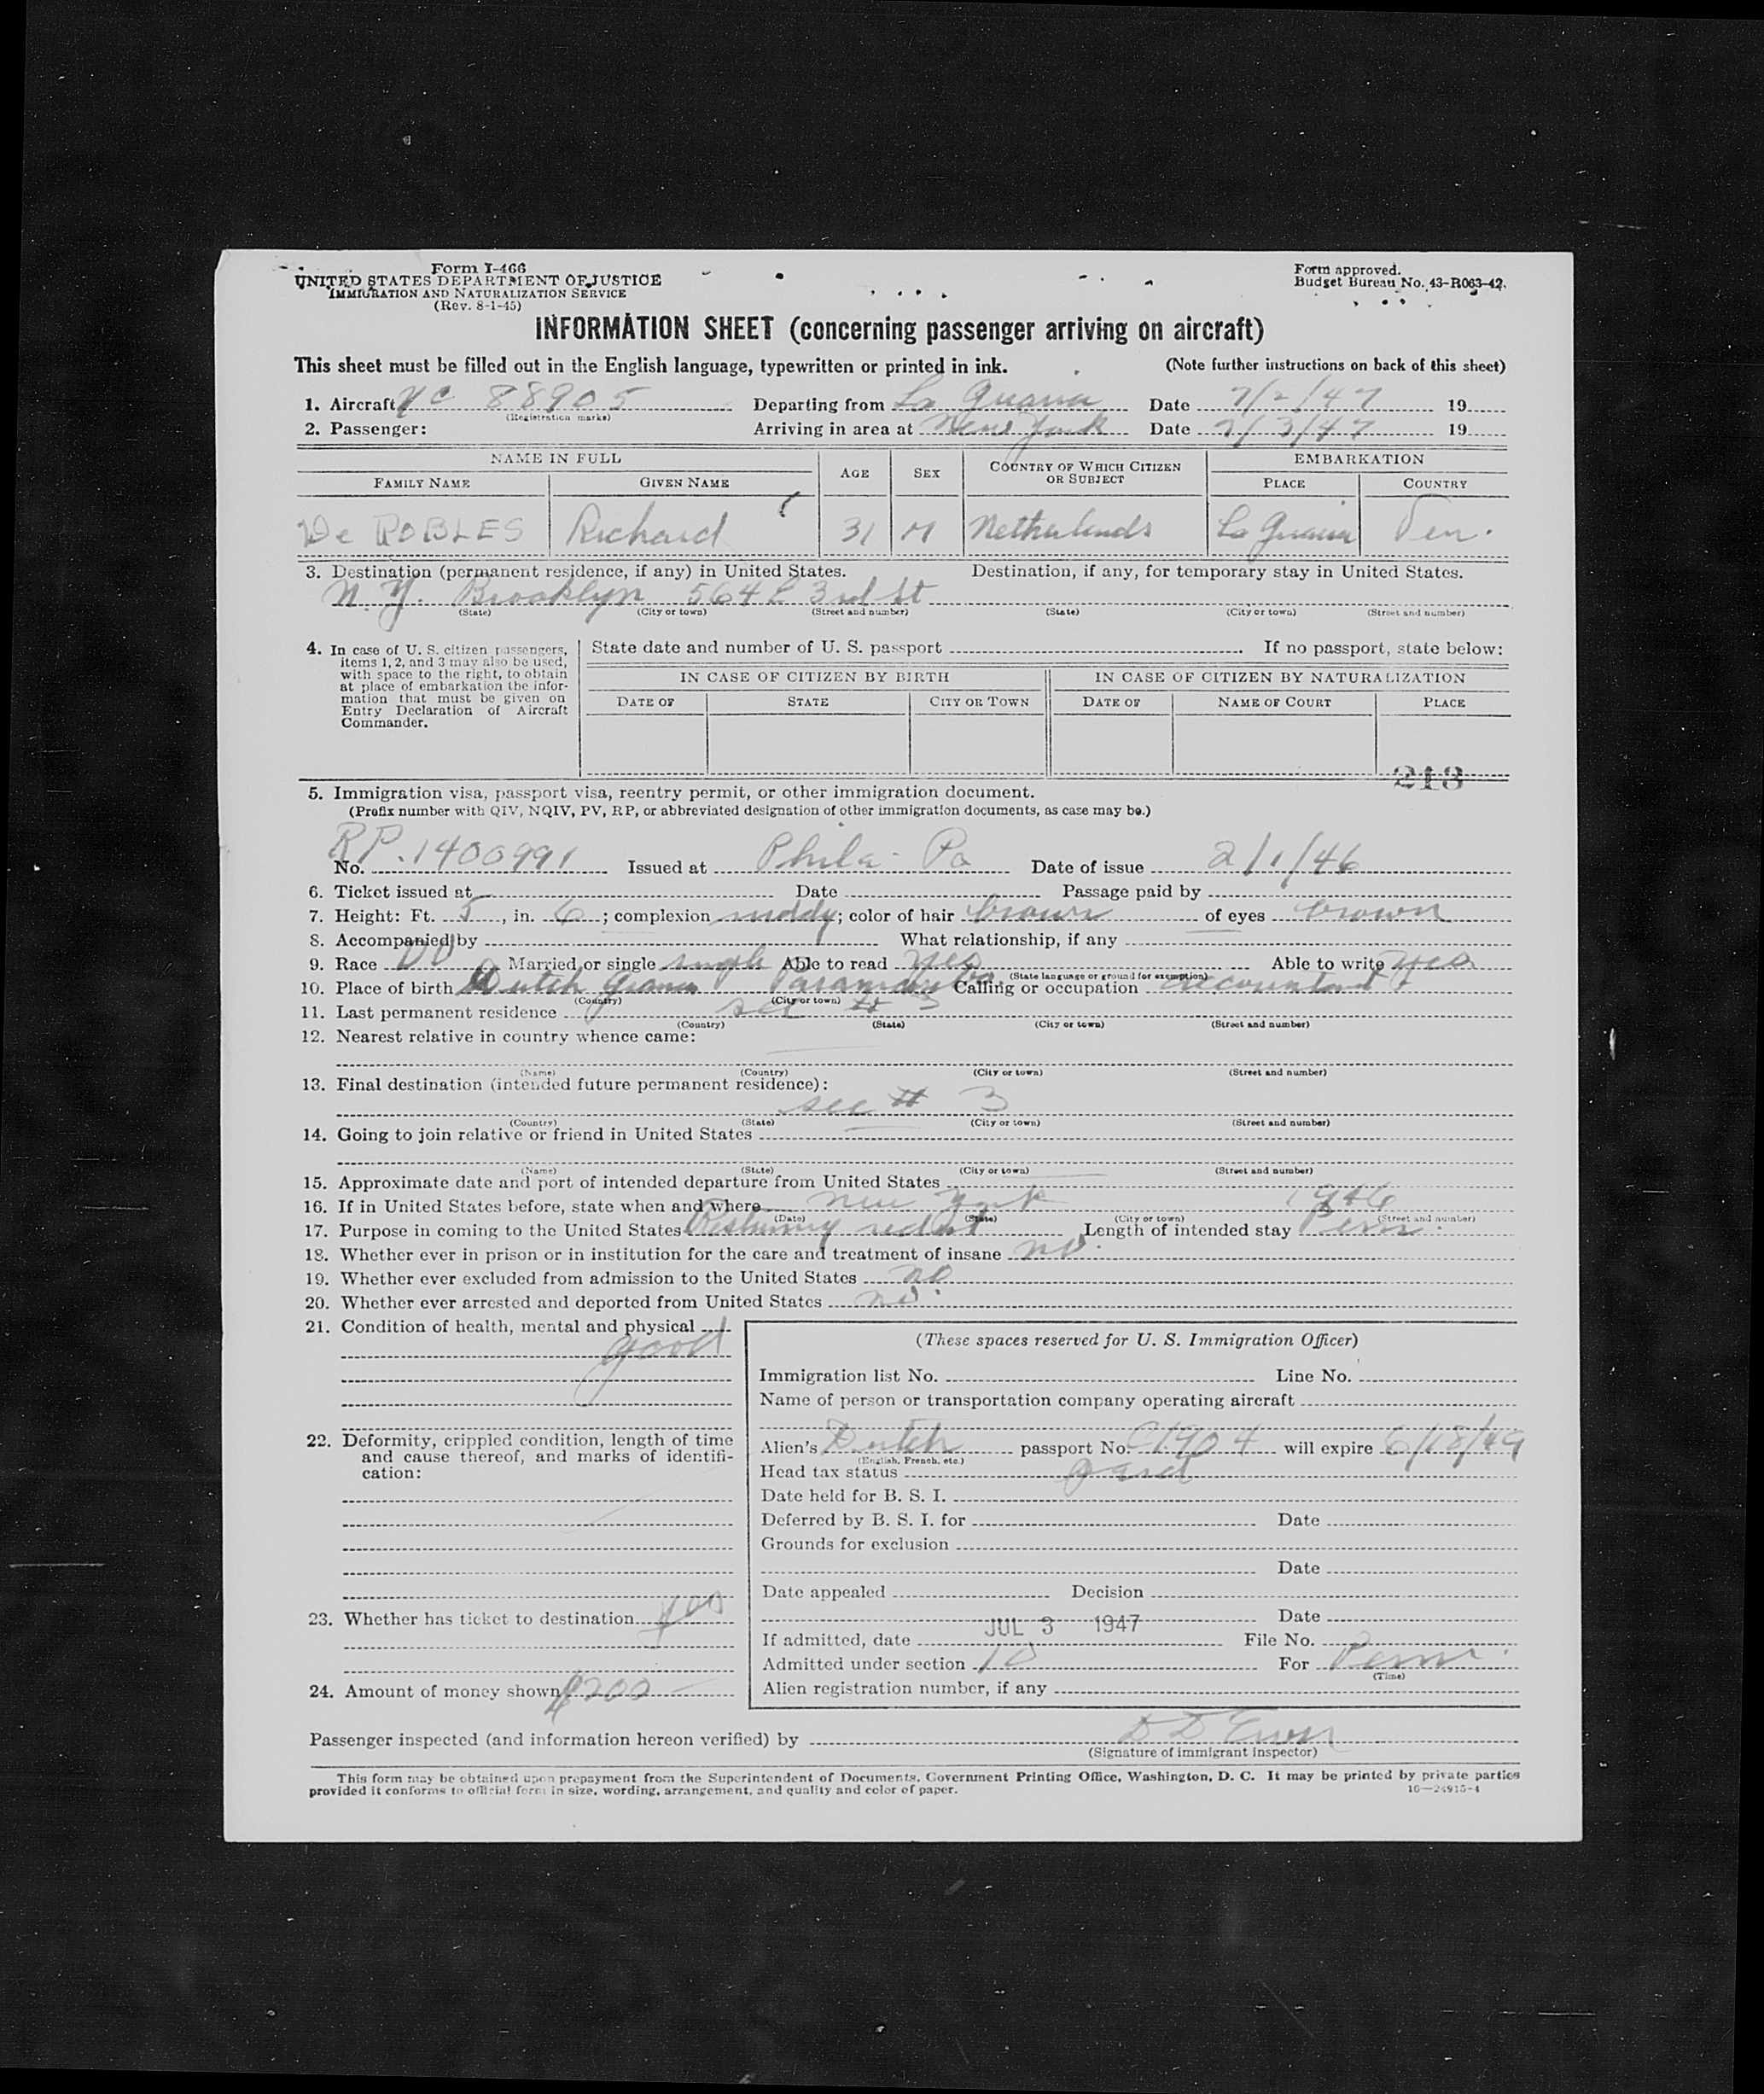 Form I-466
UNITED STATES DEPARTMENT OF JUSTICE
IMMIGRATION AND NATURALIZATION SERVICE
(Rev. 8-1-45)
Form approved.
Budget Bureau No. 43-R063-42.
INFORMATION SHEET (concerning passenger arriving on aircraft)
This sheet must be filled out in the English language, typewritten or printed in ink. (Note further instructions on back of this sheet)
1. Aircraft NC 88905 Departing from La Guaira Date 7/2/47 19
(Registration marks)
2. Passenger: Arriving in area at New York Date 7/3/47 19
NAME IN FULL AGE SEX COUNTRY OF WHICH CITIZEN OR SUBJECT EMBARKATION
FAMILY NAME GIVEN NAME PLACE COUNTRY
De ROBLES Richard 31 M Netherlands La Guaira Ven.
3. Destination (permanent residence, if any) in United States. Destination, if any, for temporary stay in United States.
N.Y. Brooklyn 564 E 3rd St
(State) (City or town) (Street and number) (State) (City or town) (Street and number)
4. In case of U. S. citizen passengers, items 1, 2, and 3 may also be used, with space to the right, to obtain at place of embarkation the information that must be given on Entry Declaration of Aircraft Commander.
State date and number of U. S. passport If no passport, state below:
IN CASE OF CITIZEN BY BIRTH IN CASE OF CITIZEN BY NATURALIZATION
DATE OF STATE CITY OR TOWN DATE OF NAME OF COURT PLACE
213
5. Immigration visa, passport visa, reentry permit, or other immigration document.
(Prefix number with QIV, NQIV, PV, RP, or abbreviated designation of other immigration documents, as case may be.)
No. RP. 1400991 Issued at Phila. Pa Date of issue 2/1/46
6. Ticket issued at Date Passage paid by
7. Height: Ft. 5, in. 6; complexion ruddy; color of hair brown of eyes brown
8. Accompanied by What relationship, if any
9. Race DU Married or single single Able to read yes Able to write yes
(State language or ground for exemption)
10. Place of birth Dutch Guiana Paramaribo Calling or occupation accountant
(Country) (City or town)
11. Last permanent residence see # 3
(Country) (State) (City or town) (Street and number)
12. Nearest relative in country whence came:
(Name) (Country) (City or town) (Street and number)
13. Final destination (intended future permanent residence):
see # 3
(Country) (State) (City or town) (Street and number)
14. Going to join relative or friend in United States
(Name) (State) (City or town) (Street and number)
15. Approximate date and port of intended departure from United States
16. If in United States before, state when and where New York 1946
(Date) (State) (City or town) (Street and number)
17. Purpose in coming to the United States Returning Length of intended stay Perm.
18. Whether ever in prison or in institution for the care and treatment of insane no.
19. Whether ever excluded from admission to the United States no
20. Whether ever arrested and deported from United States no.
21. Condition of health, mental and physical
good
22. Deformity, crippled condition, length of time and cause thereof, and marks of identification:
23. Whether has ticket to destination yes
24. Amount of money shown $200
(These spaces reserved for U. S. Immigration Officer)
Immigration list No. Line No.
Name of person or transportation company operating aircraft
Alien's Dutch passport No. will expire 6/18/49
(English, French, etc.)
Head tax status
Date held for B. S. I.
Deferred by B. S. I. for Date
Grounds for exclusion
Date
Date appealed Decision
Date
If admitted, date JUL 3 1947 File No.
Admitted under section For Perm.
(Time)
Alien registration number, if any
Passenger inspected (and information hereon verified) by
(Signature of immigrant inspector)
This form may be obtained upon prepayment from the Superintendent of Documents, Government Printing Office, Washington, D. C. It may be printed by private parties
provided it conforms to official form in size, wording, arrangement, and quality and color of paper. 16—24915-4